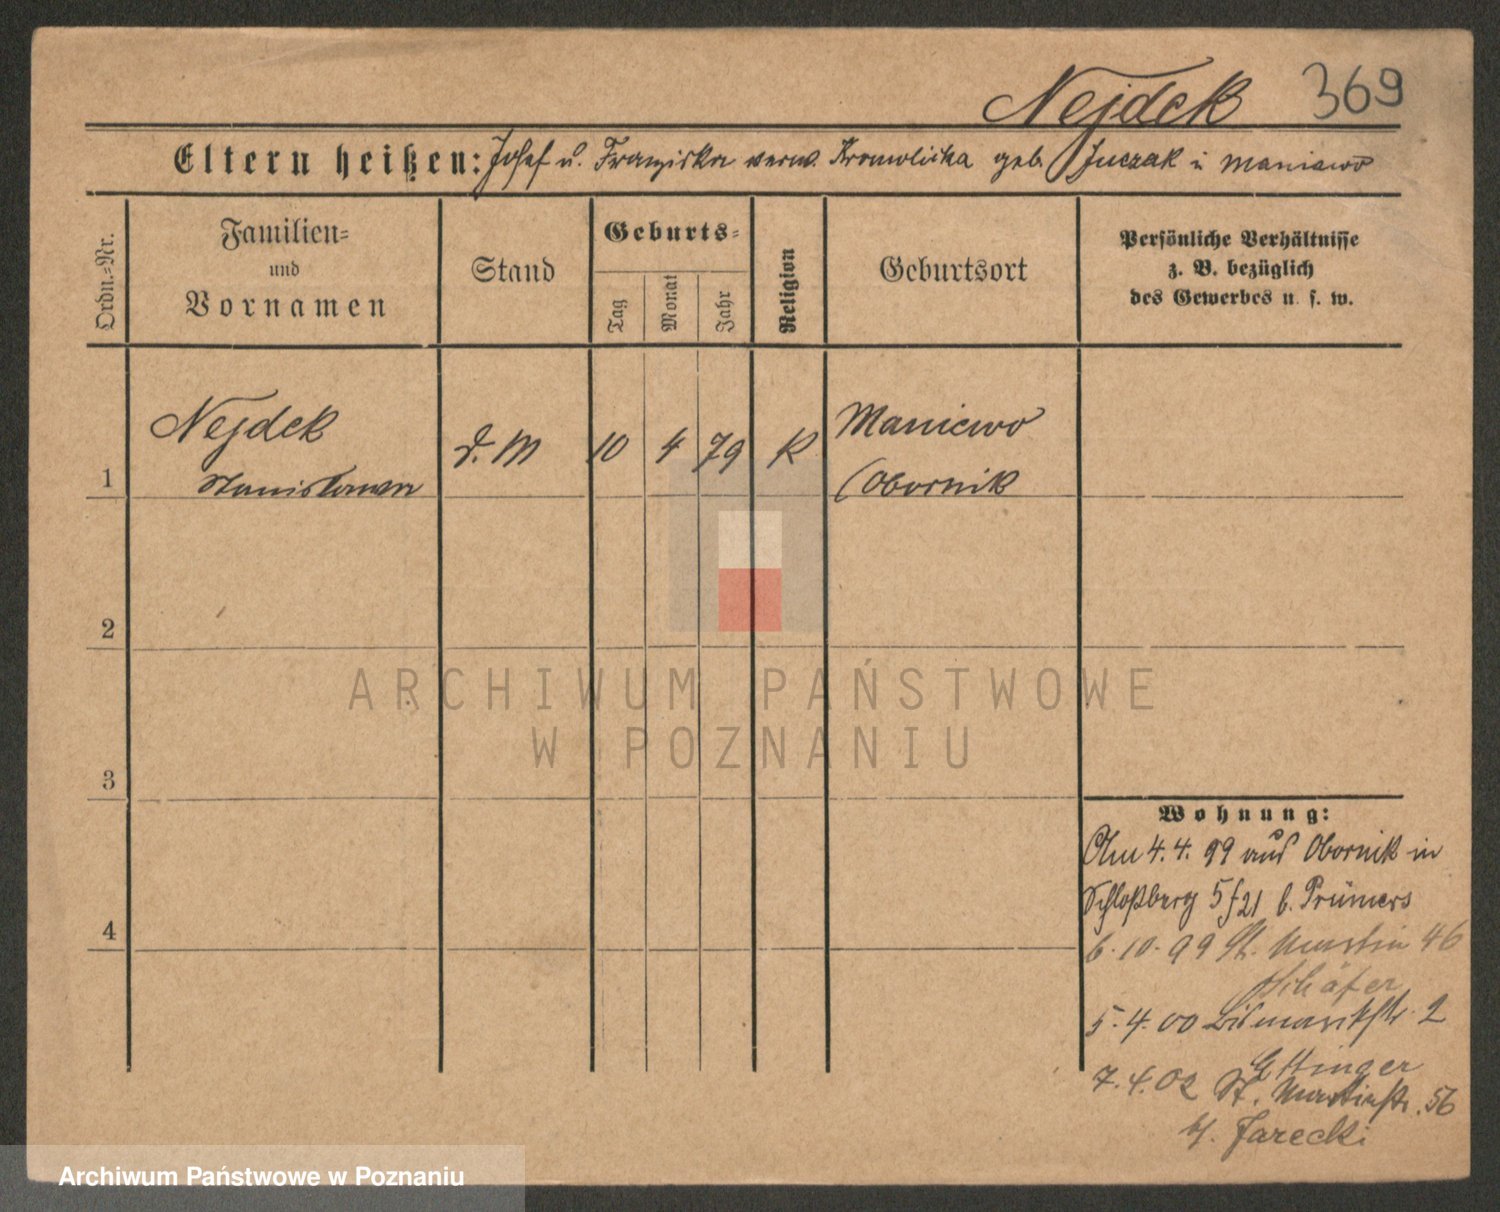 Nejdek 369
Eltern heißen: Josef u. Franziska verw. Kromolicka geb. Juczak i Maniewo
Ordn.=Nr.
Familien=
und
Vornamen
Stand
Geburts=
Tag
Monat
Jahr
Religion
Geburtsort
Persönliche Verhältnisse
z. B. bezüglich
des Gewerbes u. s. w.
1
Nejdek
Stanislawa
d. M
10
4
79
K
Maniewo
(Obornik
2
3
4
ARCHIWUM PAŃSTWOWE
W POZNANIU
Wohnung:
4. 4. 99 aus Obornik in
Schloßberg 5 b. Prümers
6. 10. 99 St. Martin 46
Schäfer
5. 4. 00 Bismarckstr. 2
Ettinger
7. 4. 02 St. Martinstr. 56
Jarecki
Archiwum Państwowe w Poznaniu